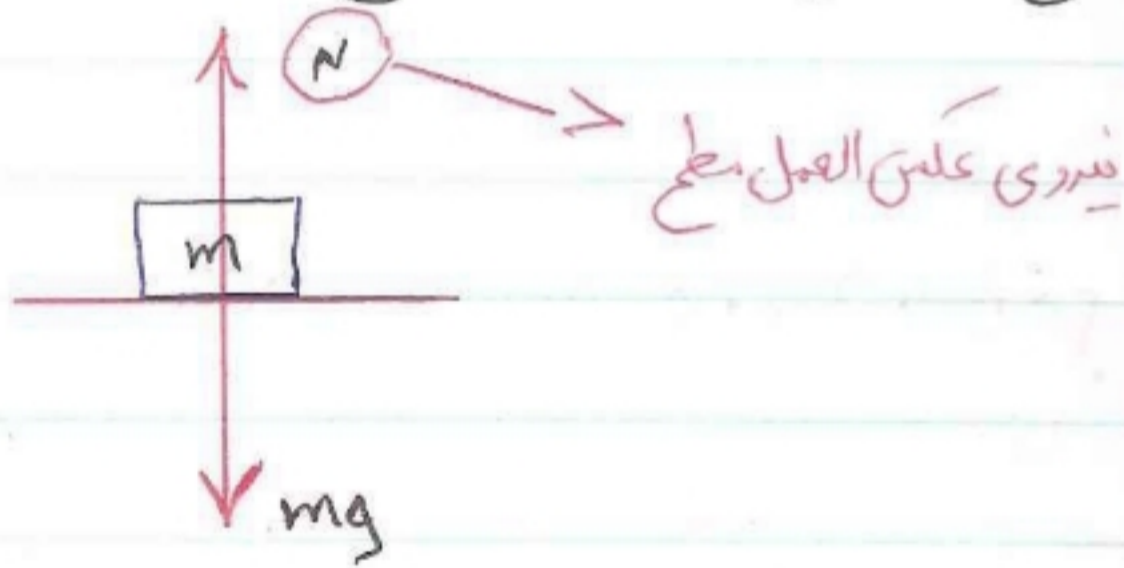 N
نیروی عکس العمل سطح
m
mg